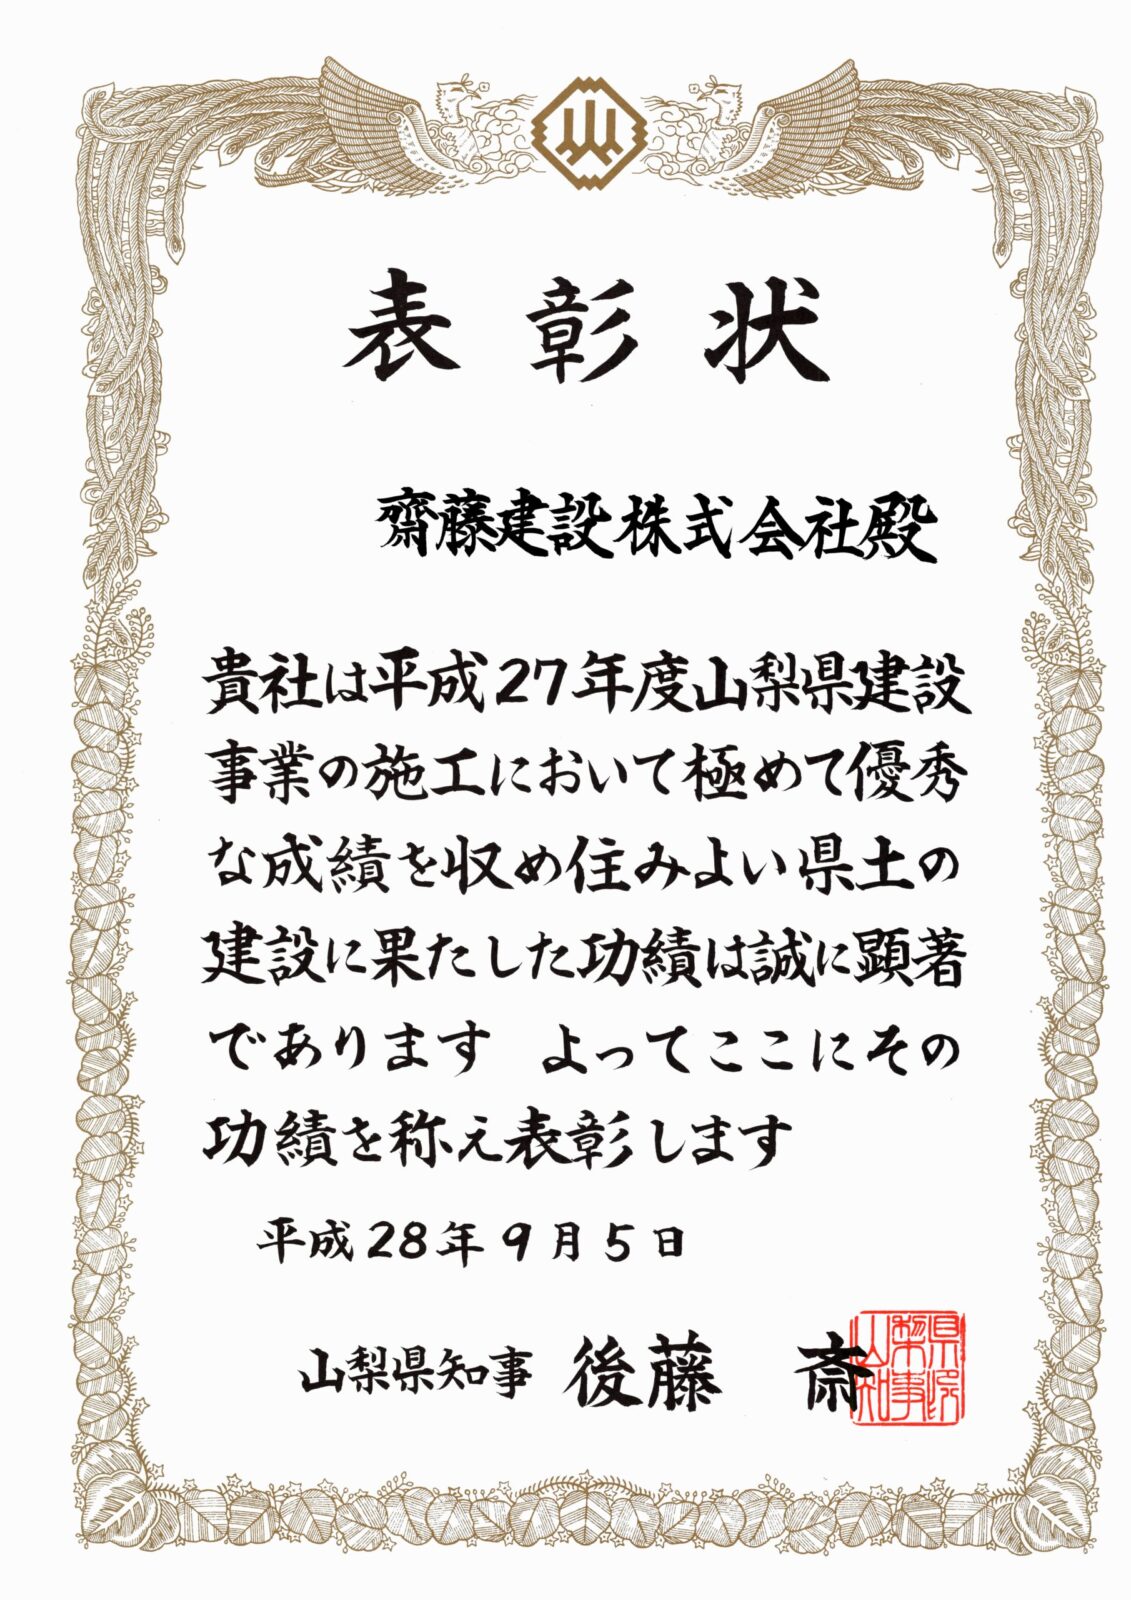 表彰状
齋藤建設株式会社殿
貴社は平成27年度山梨県建設
事業の施工において極めて優秀
な成績を収め住みよい県土の
建設に果たした功績は誠に顕著
であります よってここにその
功績を称え表彰します
平成28年9月5日
山梨県知事 後藤 斎